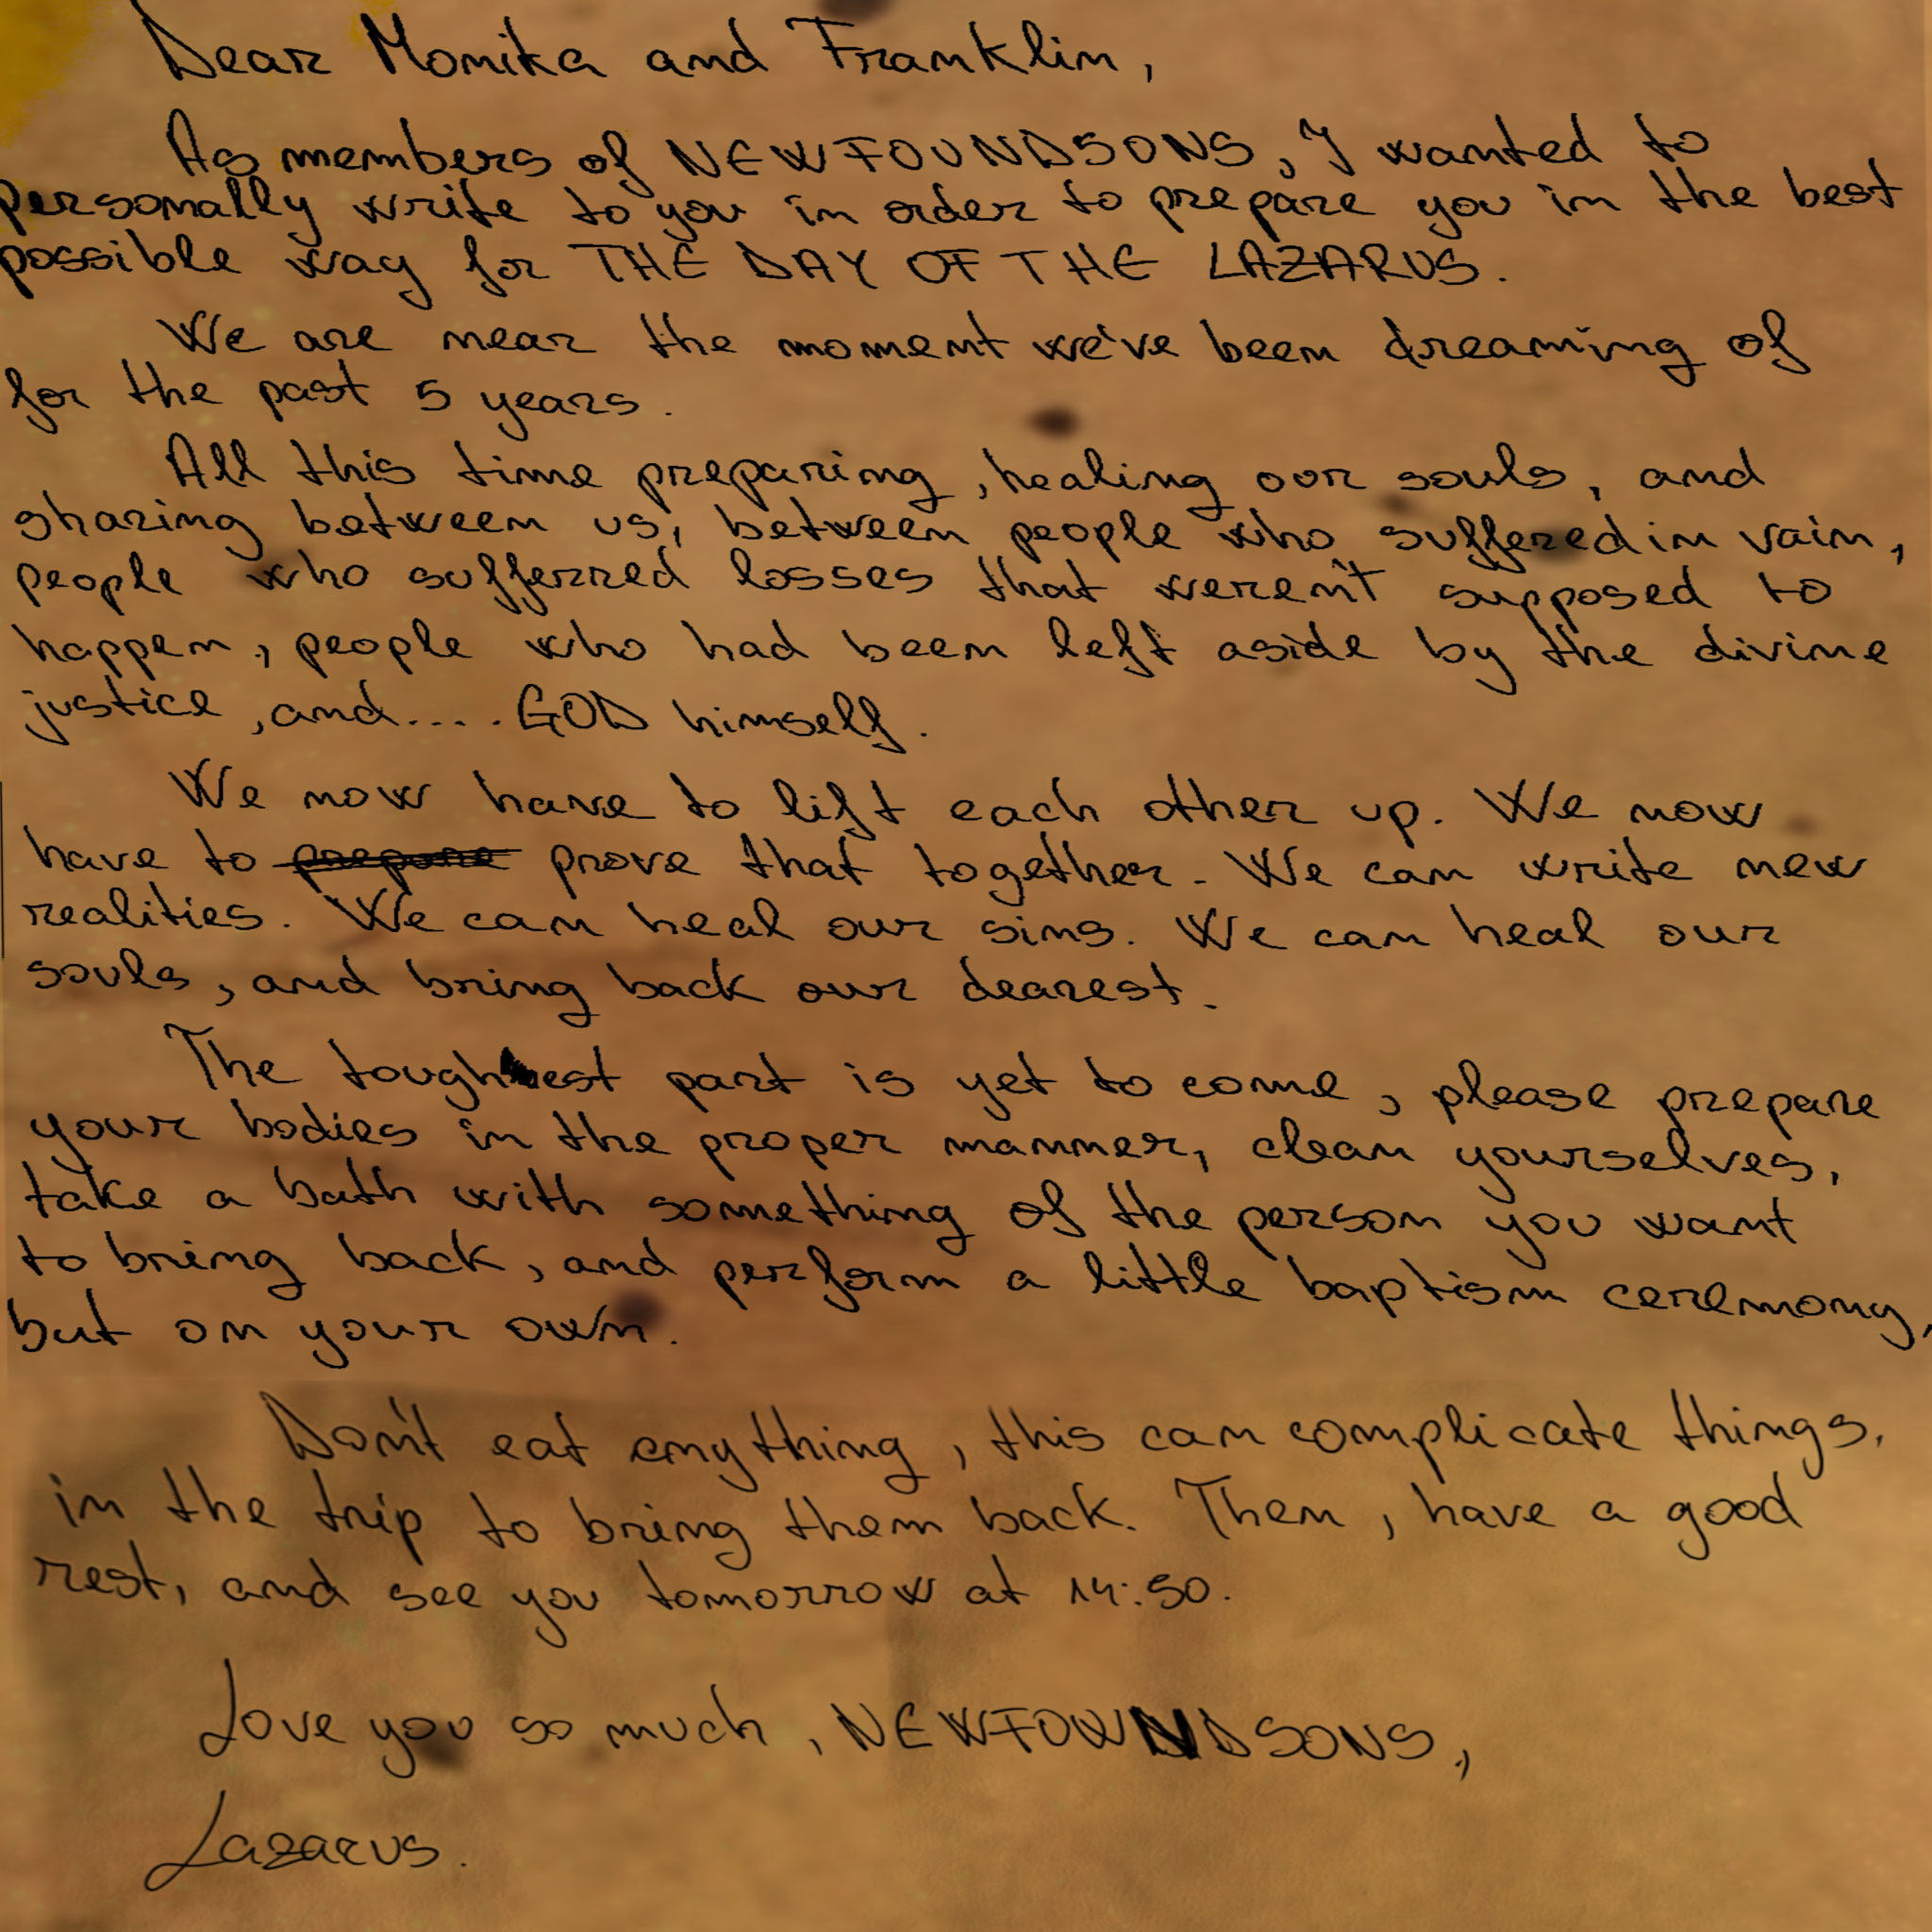 Dear Monika and Franklin,
As members of NEWFOUNDSONS, I wanted to
personally write to you in order to prepare you in the best
possible way for THE DAY OF THE LAZARUS.
We are near the moment we've been dreaming of
for the past 5 years.
All this time preparing, healing our souls, and
sharing between us, between people who suffered in vain,
people who sufferred losses that weren't supposed to
happen, people who had been left aside by the divine
justice, and.... GOD himself.
We now have to lift each other up. We now
have to prepare prove that together. We can write new
realities. We can heal our sins. We can heal our
souls, and bring back our dearest.
The toughest part is yet to come, please prepare
your bodies in the proper manner, clean yourselves,
take a bath with something of the person you want
to bring back, and perform a little baptism ceremony,
but on your own.
Don't eat anything, this can complicate things,
in the trip to bring them back. Then, have a good
rest, and see you tomorrow at 14:50.
Love you so much, NEWFOUNDSONS,
Lazarus.